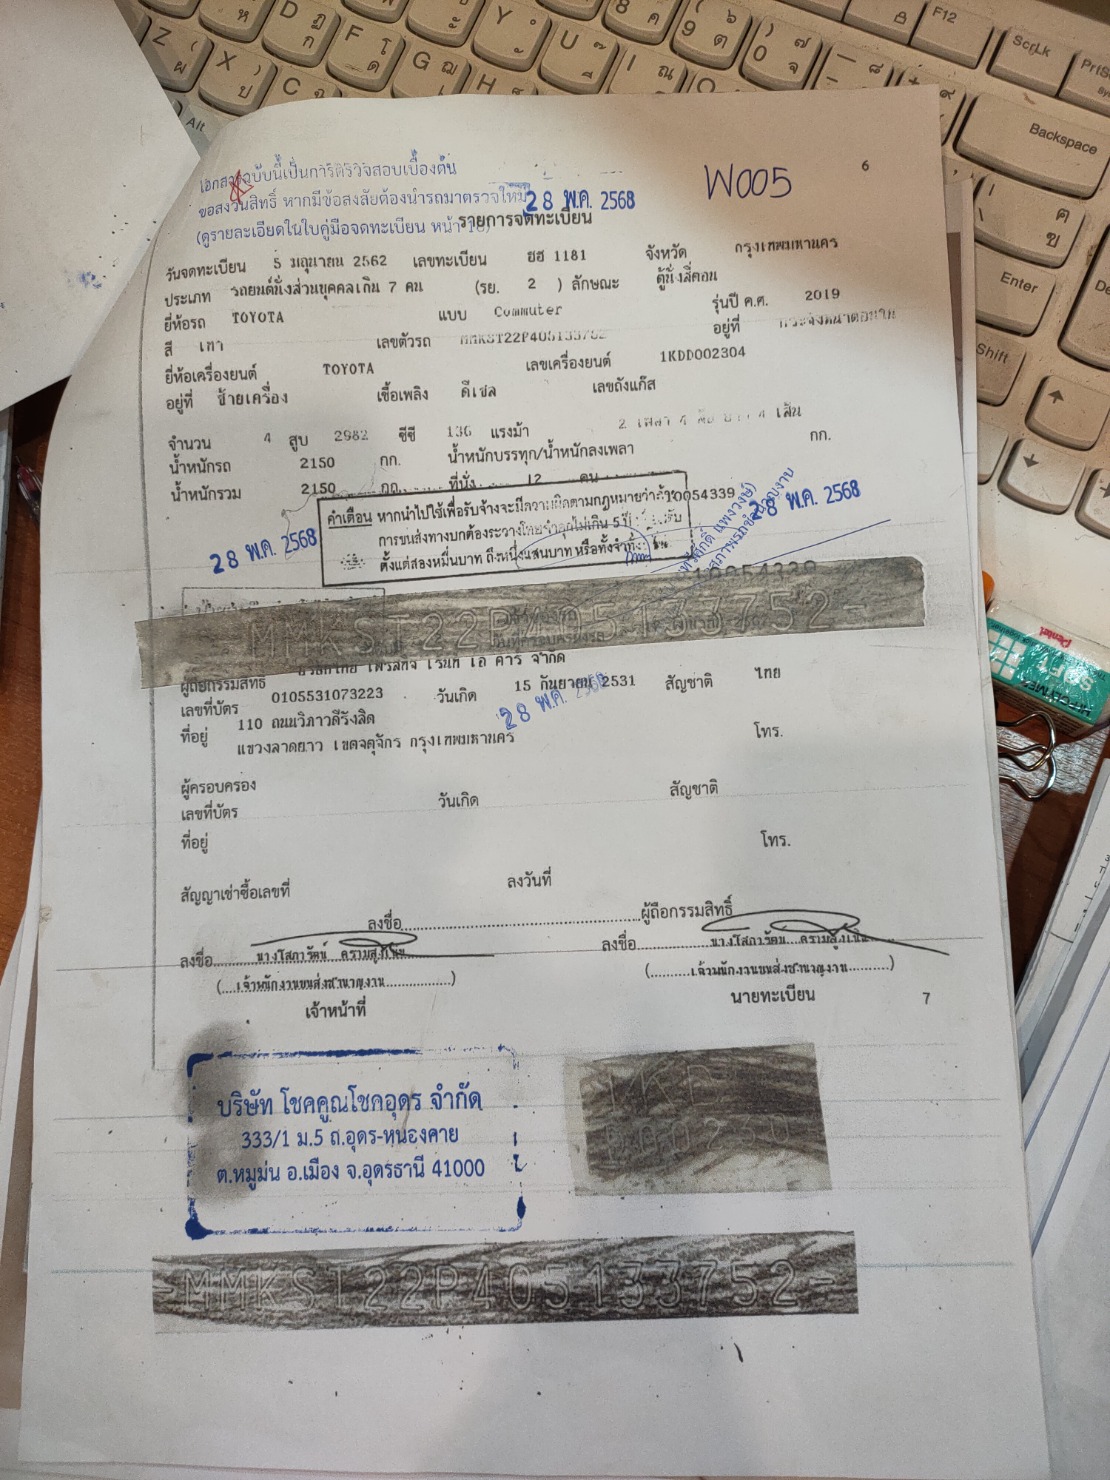 6
W005
เอกสารฉบับนี้เป็นการตรวจสอบเบื้องต้น
ขอสงวนสิทธิ์ หากมีข้อสงสัยต้องนำรถมาตรวจใหม่
28 พ.ค. 2568
(ดูรายละเอียดในใบคู่มือจดทะเบียน หน้า 18)
รายการจดทะเบียน
วันจดทะเบียน 5 มิถุนายน 2562 เลขทะเบียน ฮฮ 1181 จังหวัด กรุงเทพมหานคร
ประเภท รถยนต์นั่งส่วนบุคคลเกิน 7 คน (รย. 2 ) ลักษณะ ตู้นั่งสี่ตอน
ยี่ห้อรถ TOYOTA แบบ Commuter รุ่นปี ค.ศ. 2019
สี เทา เลขตัวรถ MMKST22P405133752 อยู่ที่
ยี่ห้อเครื่องยนต์ TOYOTA เลขเครื่องยนต์ 1KDD002304
อยู่ที่ ซ้ายเครื่อง เชื้อเพลิง ดีเซล เลขถังแก๊ส
จำนวน 4 สูบ 2982 ซีซี 136 แรงม้า 2 เพลา 4 ล้อ ยาง 4 เส้น
น้ำหนักรถ 2150 กก. น้ำหนักบรรทุก/น้ำหนักลงเพลา กก.
น้ำหนักรวม 2150 กก. ที่นั่ง 12 คน
คำเตือน หากนำไปใช้เพื่อรับจ้างจะมีความผิดตามกฎหมายว่าด้วย
10054339
การขนส่งทางบกต้องระวางโทษจำคุกไม่เกิน 5 ปี
ตั้งแต่สองหมื่นบาท ถึงหนึ่งแสนบาท หรือทั้งจำทั้ง
28 พ.ค. 2568
28 พ.ค. 2568
10054339
MMKST22P405133752-
ผู้ถือกรรมสิทธิ์
เลขที่บัตร 0105531073223 วันเกิด 15 กันยายน 2531 สัญชาติ ไทย
28 พ.ค. 2568
ที่อยู่ 110 ถนนวิภาวดีรังสิต
แขวงลาดยาว เขตจตุจักร กรุงเทพมหานคร โทร.
ผู้ครอบครอง
เลขที่บัตร วันเกิด สัญชาติ
ที่อยู่ โทร.
สัญญาเช่าซื้อเลขที่ ลงวันที่
ลงชื่อ ผู้ถือกรรมสิทธิ์
ลงชื่อ นางโสภารัตน์ ลงชื่อ นางโสภารัตน์
(....เจ้าพนักงานขนส่งชำนาญงาน....) (....เจ้าพนักงานขนส่งชำนาญงาน....)
เจ้าหน้าที่ นายทะเบียน
7
บริษัท โชคคูณโชคอุดร จำกัด
333/1 ม.5 ถ.อุดร-หนองคาย
ต.หมูม่น อ.เมือง จ.อุดรธานี 41000
-MMKST22P405133752-